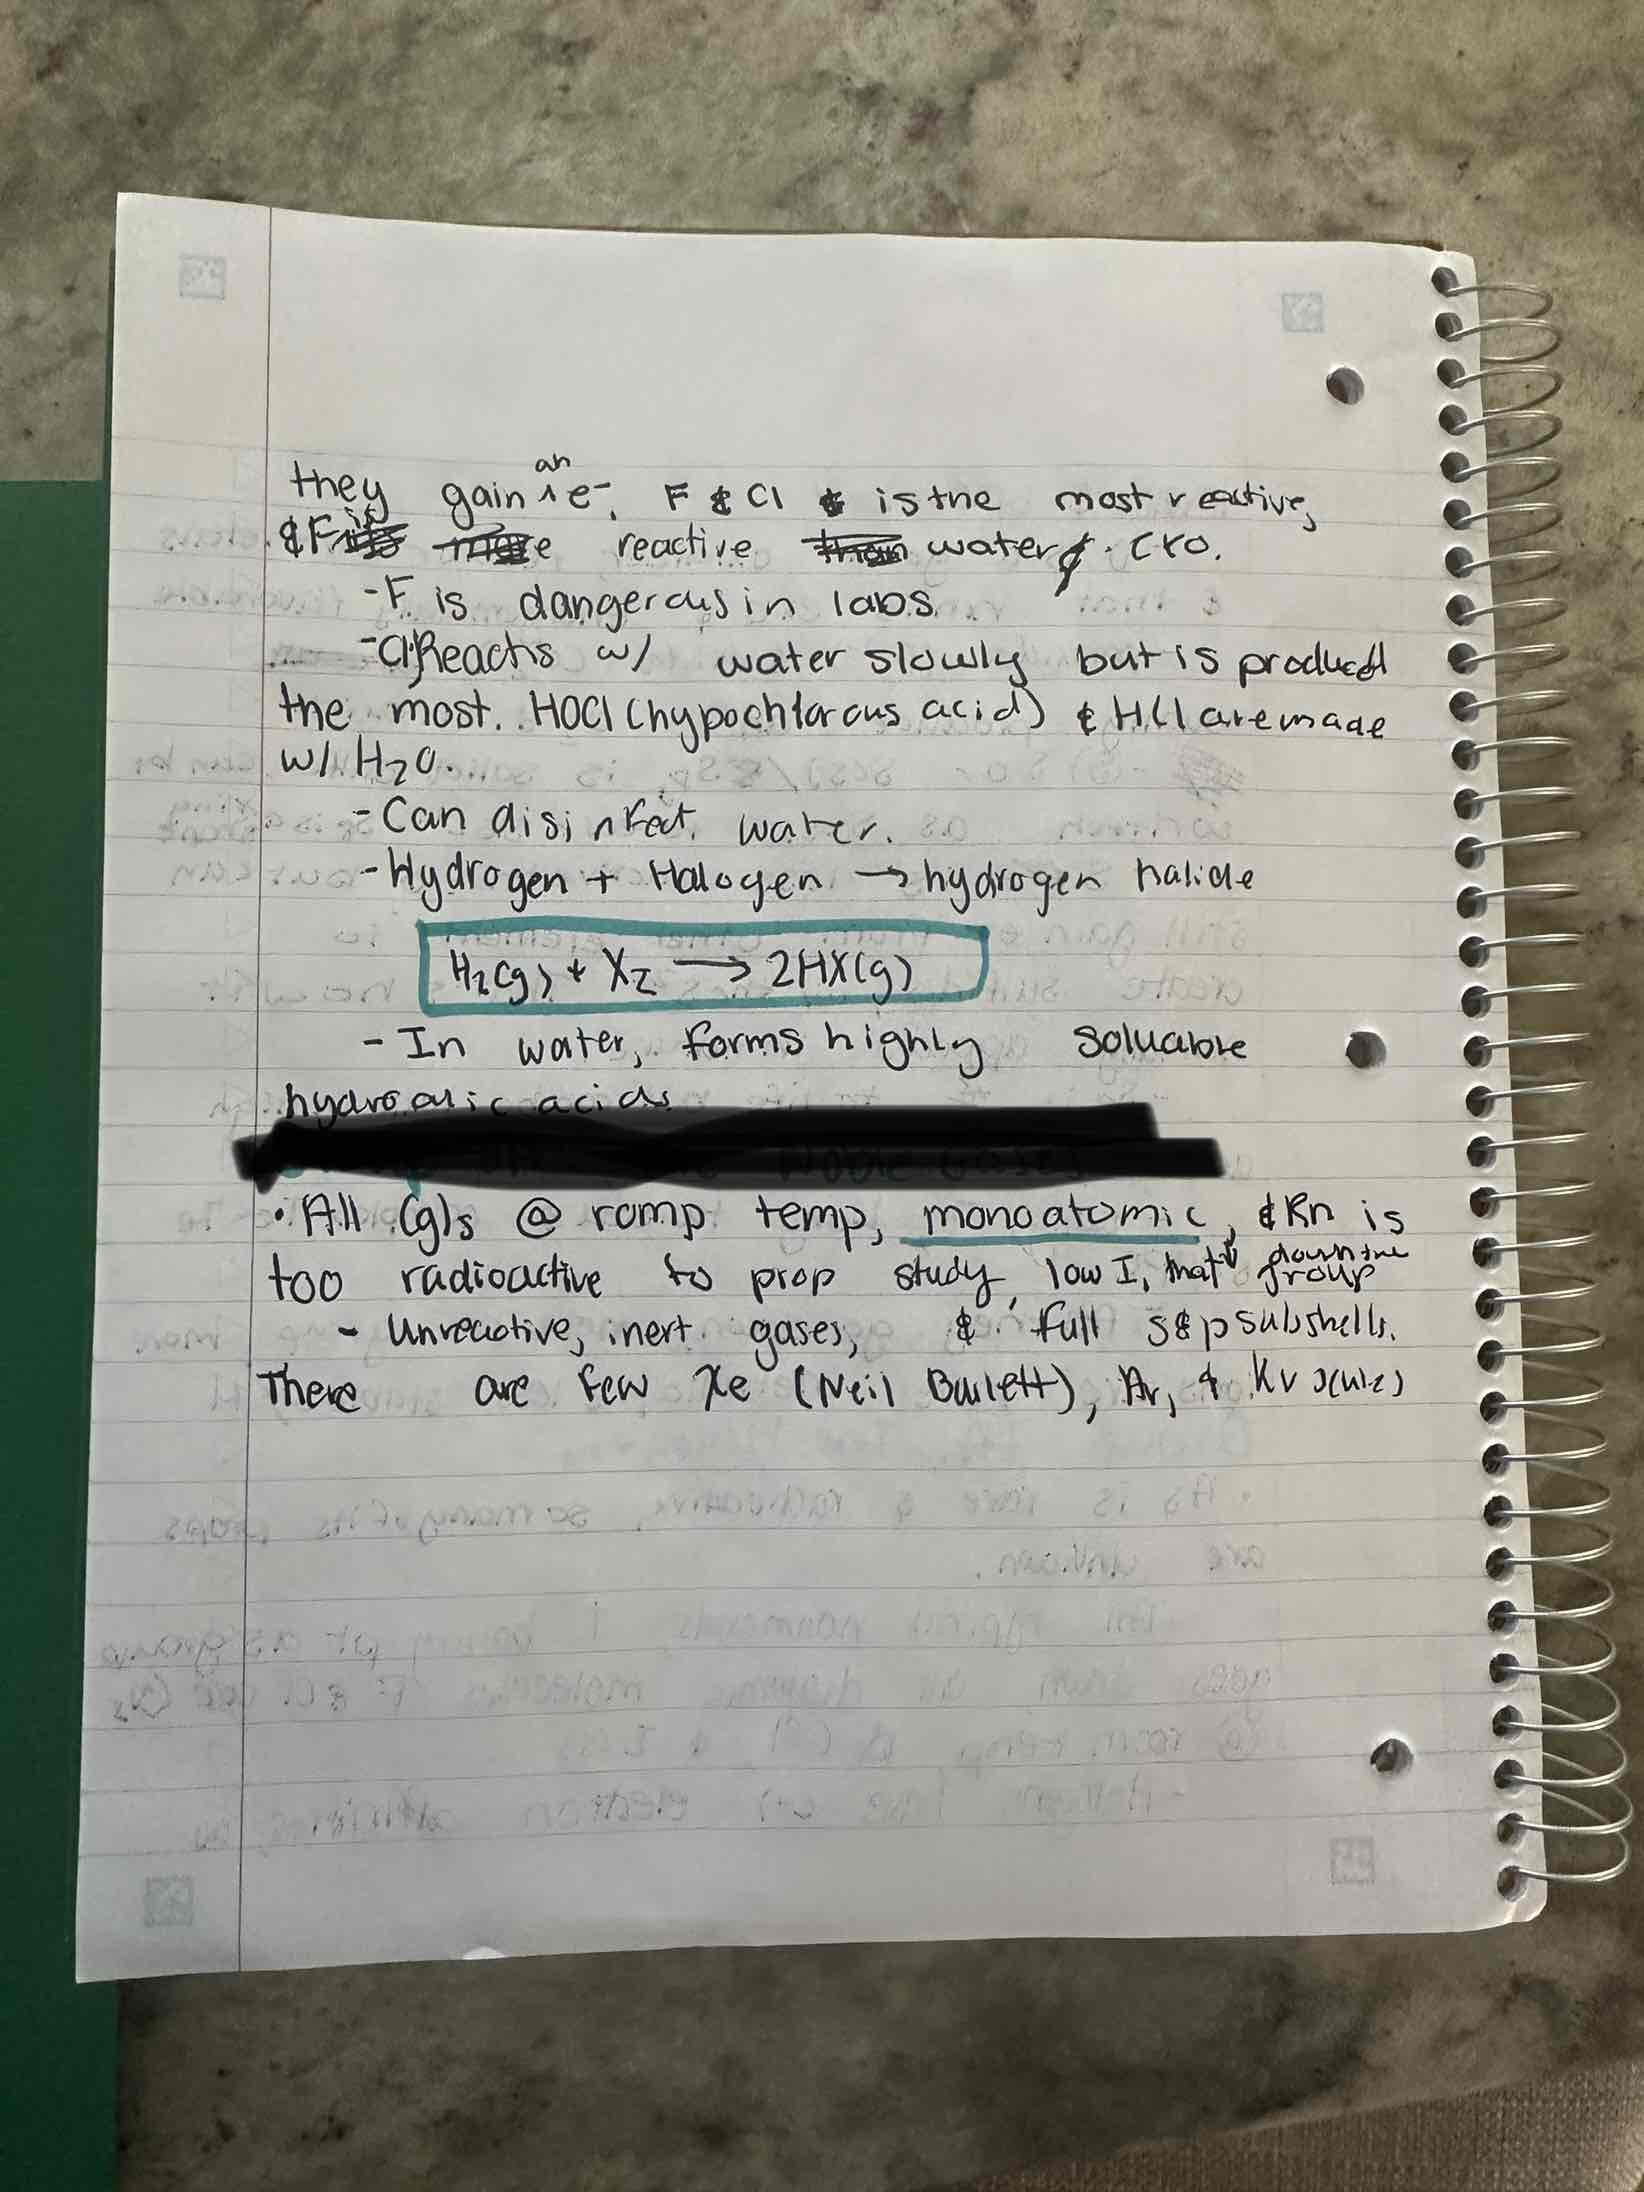 they gain an e-. F & Cl & is the most reactive,
& F is reactive water & . Cro.
-F is dangerous in labs
-Cl Reacts w/ water slowly but is produced
the most. HOCl (hypochlorous acid) & HCl are made
w/ H2O.
-Can disinfect water.
-Hydrogen + Halogen → hydrogen halide
H2(g) + X2 → 2HX(g)
-In water, forms highly soluable
acids
• All (g)s @ romp temp, monoatomic, & Rn is
too radioactive to prop study, low I, that ↓ down the group
- Unreactive, inert gases, & full s & p subshells.
There are few Xe (Neil Barlett), Ar, & Kr